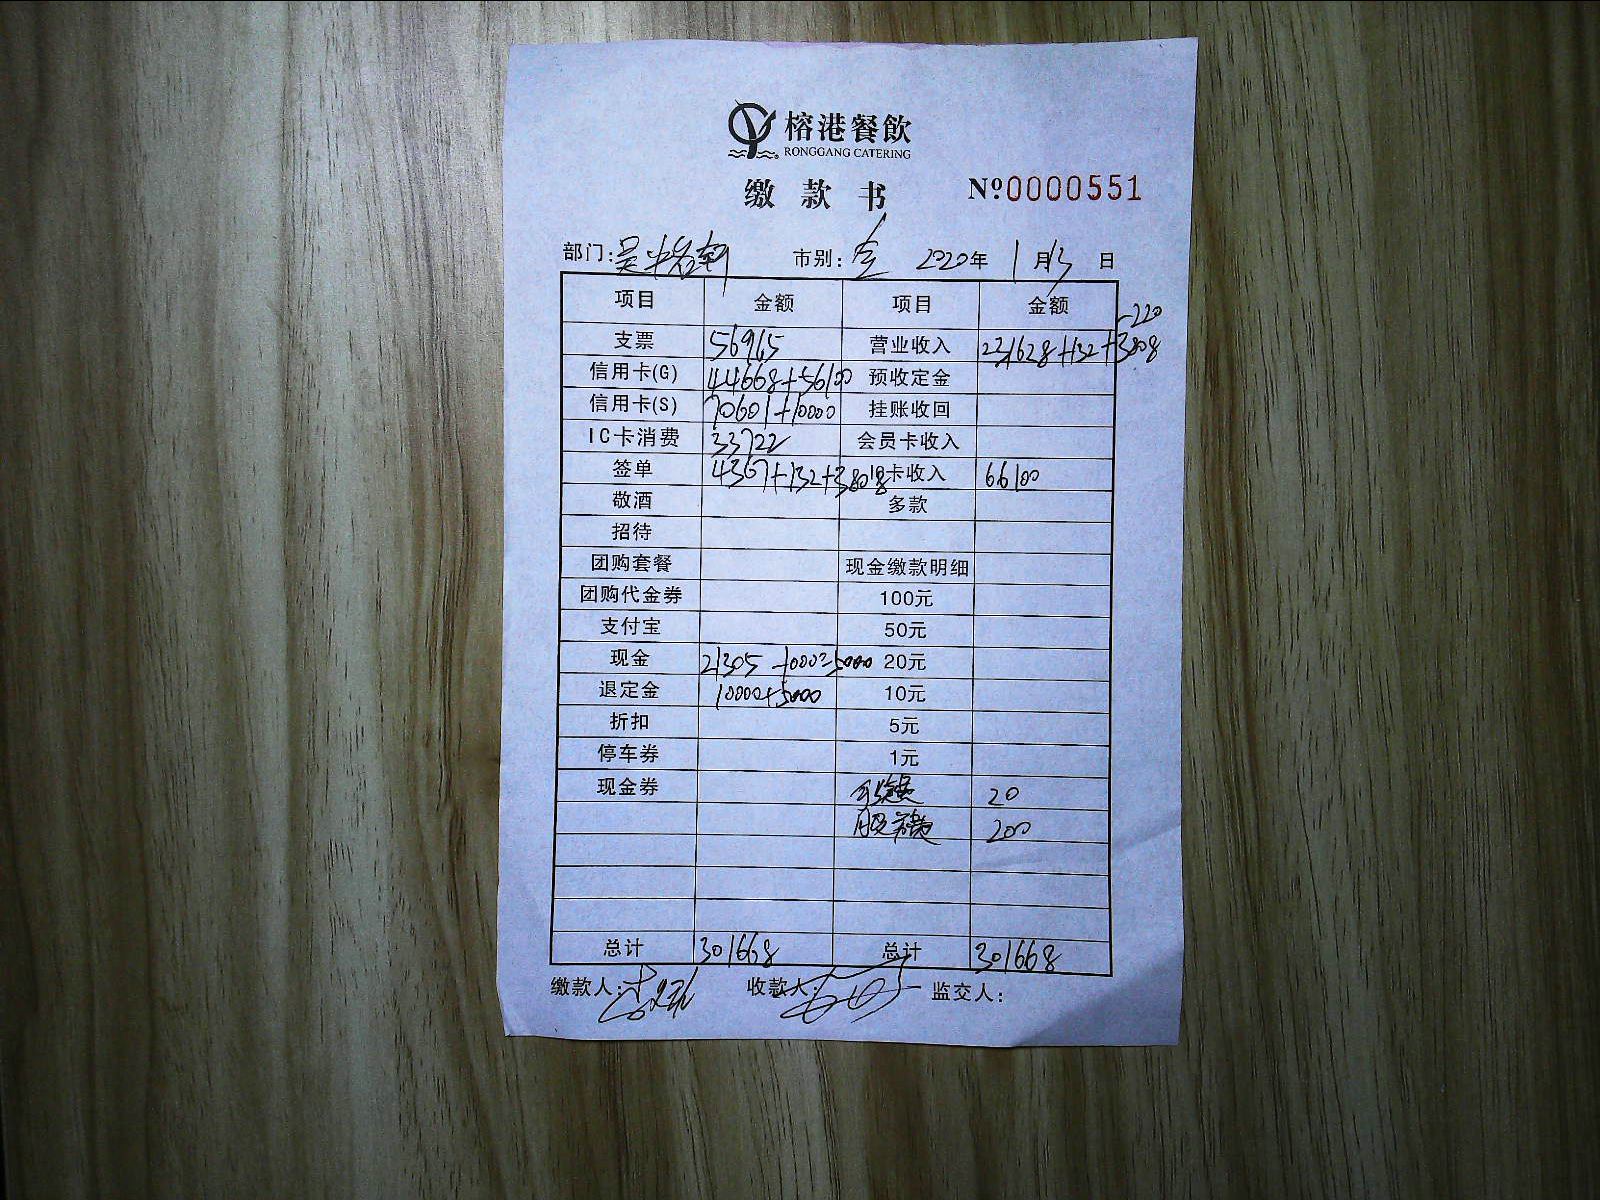 榕港餐飲
RONGGANG CATERING
缴款书 №0000551
部门: 吴中名轩 市别: 全 2020年 1月13日
项目 金额 项目 金额
-220
支票 56965 营业收入 231628+132+3808
信用卡(G) 44668+56100 预收定金
信用卡(S) 70601+10000 挂账收回
IC卡消费 33722 会员卡收入
签单 4367+132+3808 IC卡收入 66100
敬酒 多款
招待
团购套餐 现金缴款明细
团购代金券 100元
支付宝 50元
现金 21305-10000-5000 20元
退定金 10000+5000 10元
折扣 5元
停车券 1元
现金券 20
200
总计 301668 总计 301668
缴款人: 收款人: 监交人: